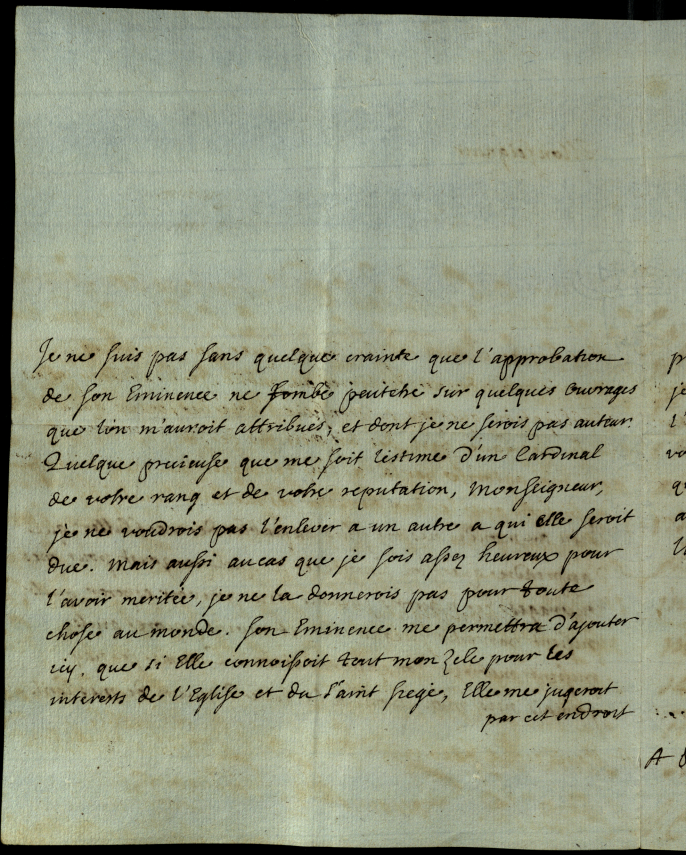 Je ne suis pas sans quelque crainte que l'approbation
de son Eminence ne tombe peutetre sur quelques ouvrages
que l'on m'auroit attribués, et dont je ne serois pas auteur.
Quelque precieuse que me soit l'estime d'un Cardinal
de votre rang et de votre reputation, Monseigneur,
je ne voudrois pas l'enlever a un autre a qui elle seroit
due. Mais aussi aucas que je sois assez heureux pour
l'avoir meritée, je ne la donnerois pas pour toute
chose au monde. Son Eminence me permettra d'ajouter
icy, que si Elle connoissoit tout mon Zele pour les
interests de l'Eglise et du Saint siege, Elle me jugeroit
par cet endroit
p
je
l'
vo
q
a
A